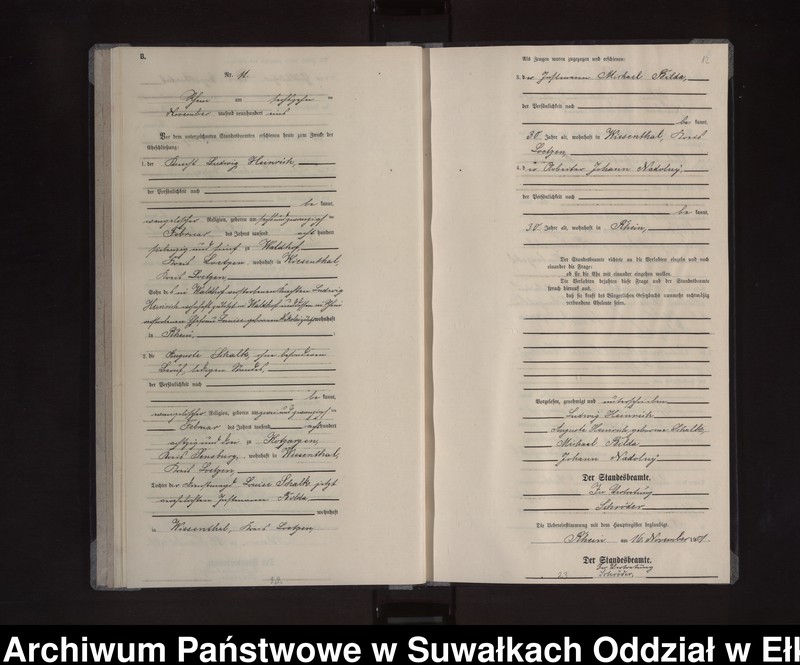 B.
Nr. 11.
Rhein am sechszehnten
November tausend neunhundert eins
Vor dem unterzeichneten Standesbeamten erschienen heute zum Zwecke der
Eheschließung:
1. der Knecht Ludwig Heinrich,
der Persönlichkeit nach
be kannt,
evangelischer Religion, geboren am
Februar des Jahres tausend acht hundert
siebenzig und fünf zu Waldhof,
Kreis Loetzen, wohnhaft in Wiesenthal,
Kreis Loetzen,
Sohn des in Waldhof verstorbenen Ludwig
Heinrich
Ehefrau Louise geborene wohnhaft
in Rhein,
2. die Auguste Schalk, ohne besonderen
Beruf, ledigen Standes,
der Persönlichkeit nach
be kannt,
evangelischer Religion, geboren am
Februar des Jahres tausend acht hundert
achtzig und drei zu
Kreis Sensburg, wohnhaft in Wiesenthal,
Kreis Loetzen,
Tochter der Dienstmagd Louise Schalk, jetzt
verehelichten Instmann
wohnhaft
in Wiesenthal, Kreis Loetzen
Als Zeugen waren zugezogen und erschienen:
3. der Instmann Michael
der Persönlichkeit nach
be kannt,
Jahre alt, wohnhaft in Wiesenthal, Kreis
Loetzen,
4. der Arbeiter Johann Nadolny,
der Persönlichkeit nach
be kannt,
Jahre alt, wohnhaft in Rhein,
Der Standesbeamte richtete an die Verlobten einzeln und nach
einander die Frage:
ob sie die Ehe mit einander eingehen wollen.
Die Verlobten bejahten diese Frage und der Standesbeamte
sprach hierauf aus,
daß sie kraft des Bürgerlichen Gesetzbuchs nunmehr rechtmäßig
verbundene Eheleute seien.
Vorgelesen, genehmigt und unterschrieben
Ludwig Heinrich
Auguste Heinrich, geborene Schalk,
Michael
Johann Nadolny
Der Standesbeamte.
In Vertretung
Schröder
Die Uebereinstimmung mit dem Hauptregister beglaubigt.
Rhein, am 16. November 1901.
Der Standesbeamte.
In Vertretung
Schröder.
Archiwum Państwowe w Suwałkach Oddział w Eł